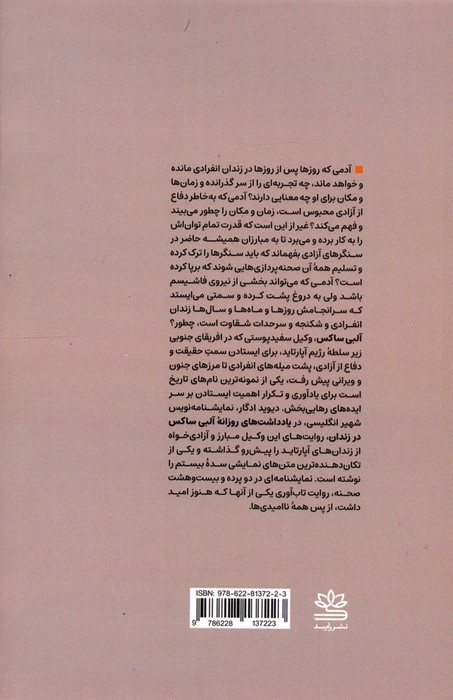 آدمی که روزها پس از روزها در زندان انفرادی مانده
و خواهد ماند، چه تجربه‌ای را از سر گذرانده و زمان‌ها
و مکان برای او چه معنایی دارند؟ آدمی‌که به‌خاطر دفاع
از آزادی محبوس است، زمان و مکان را چطور می‌بیند
و فهم می‌کند؟ غیر از این است که قدرت تمام توان‌اش
را به کار برده و می‌برد تا به مبارزان همیشه حاضر در
سنگرهای آزادی بفهماند که باید سنگرها را ترک کرده
و تسلیم همهٔ آن صحنه‌پردازی‌هایی شوند که برپا کرده
است؟ آدمـی که می‌تواند بخشی از نیروی فاشیسم
باشد ولی به دروغ پشت کرده و سمتی می‌ایستد
که سرانجامش روزها و ماه‌ها و سال‌ها زندان
انفرادی و شکنجه و سرحدات شقاوت است، چطور؟
آلبی ساکس، وکیل سفیدپوستی که در افریقای جنوبی
زیر سلطهٔ رژیم آپارتاید، برای ایستادن سمتِ حقیقت و
دفاع از آزادی، پشت میله‌های انفرادی تا مرزهای جنون
و ویرانی پیش رفت، یکی از نمونه‌ترین نام‌های تاریخ
است برای یادآوری و تکرار اهمیت ایستادن بر سر
ایده‌های رهایی‌بخش. دیوید ادگار، نمایشنامه‌نویس
شهیر انگلیسی، در یادداشت‌های روزانهٔ آلبی ساکس
در زندان، روایت‌های این وکیل مبارز و آزادی‌خواه
از زندان‌های آپارتاید را پیش‌رو گذاشته و یکی از
تکان‌دهنده‌ترین متن‌های نمایشی سدهٔ بیستم را
نوشته است. نمایشنامه‌ای در دو پرده و بیست‌وهشت
صحنه، روایت تاب‌آوری یکی از آنها که هنوز امید
داشت، از پس همهٔ ناامیدی‌ها.
ISBN: 978-622-81372-2-3
9 786228 137223
نشر رایبد